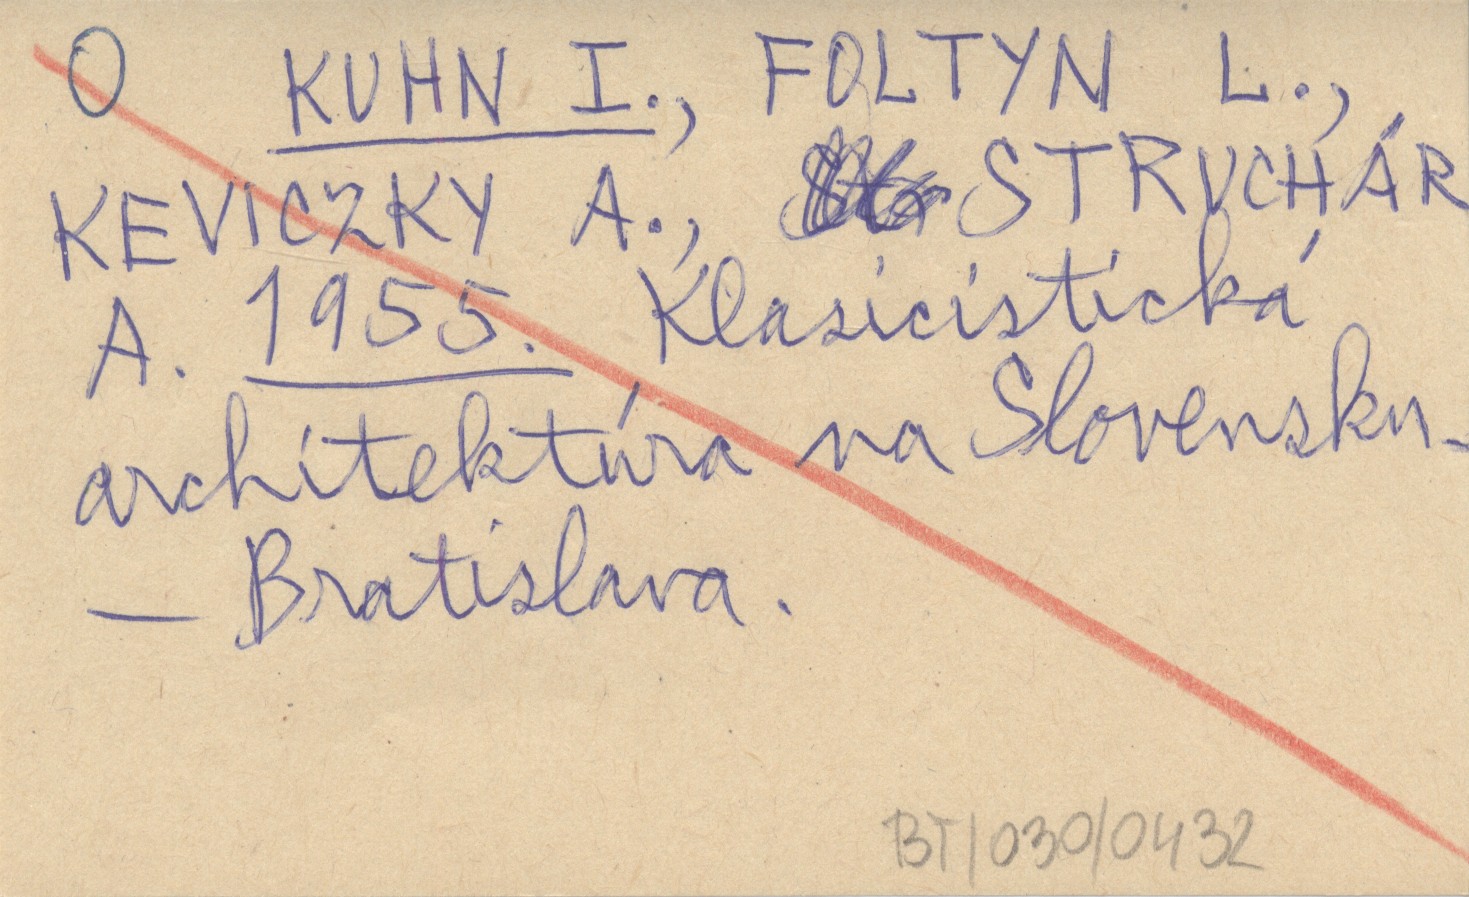 O KUHN I., FOLTYN L.,
KEVICZKY A., STRUCHÁR
A. 1955. Klasicistická
architektúra na Slovensku_
— Bratislava.
BT/030/0432